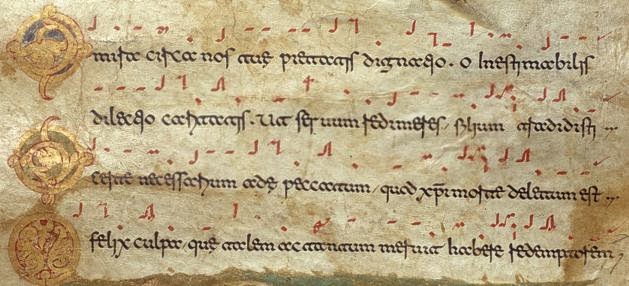 O mira circa nos tuę pietatis dignatio. O inestimabilis
dilectio caritatis. Ut seruum redimeres, filium tradidisti ...
O certe necessarium adę peccatum, quod xp̄i morte deletum est ...
O felix culpa, quę talem ac tantum meruit habere redemptorem,